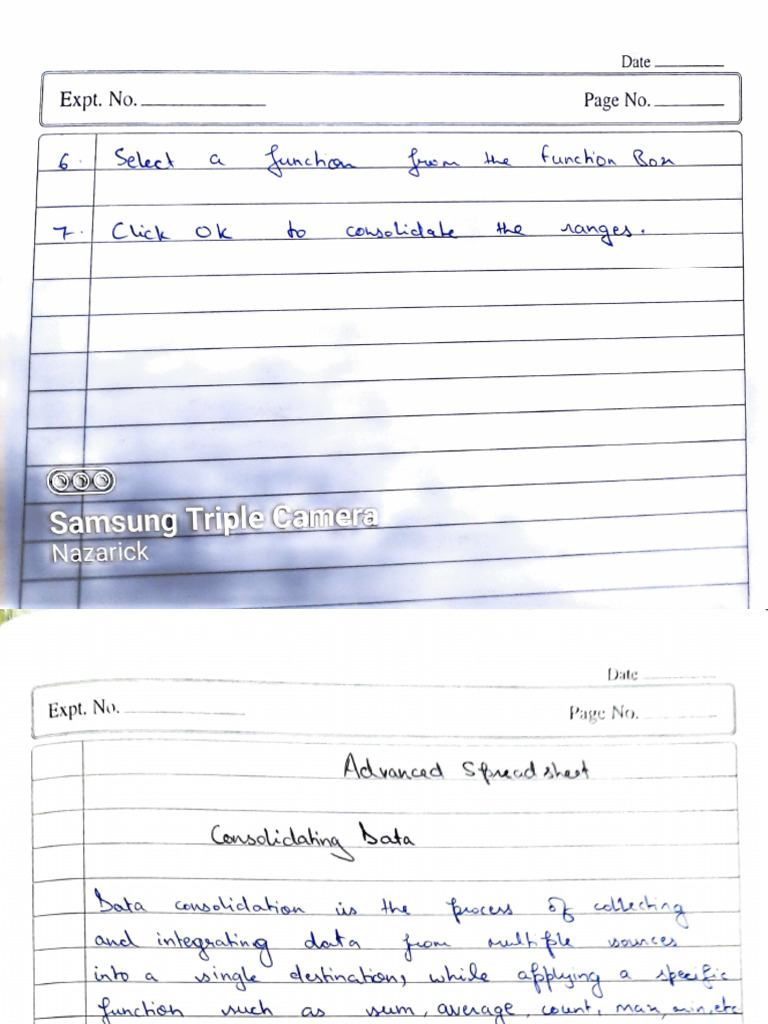 Date
Expt. No.
Page No.
6. Select a function from the function Box
7. Click OK to consolidate the ranges.
Samsung Triple Camera
Nazarick
Date
Expt. No.
Page No.
Advanced Spreadsheet
Consolidating Data
Data consolidation is the process of collecting
and integrating data from multiple sources
into a single destination, while applying a specific
function such as sum, average, count, max, min, etc